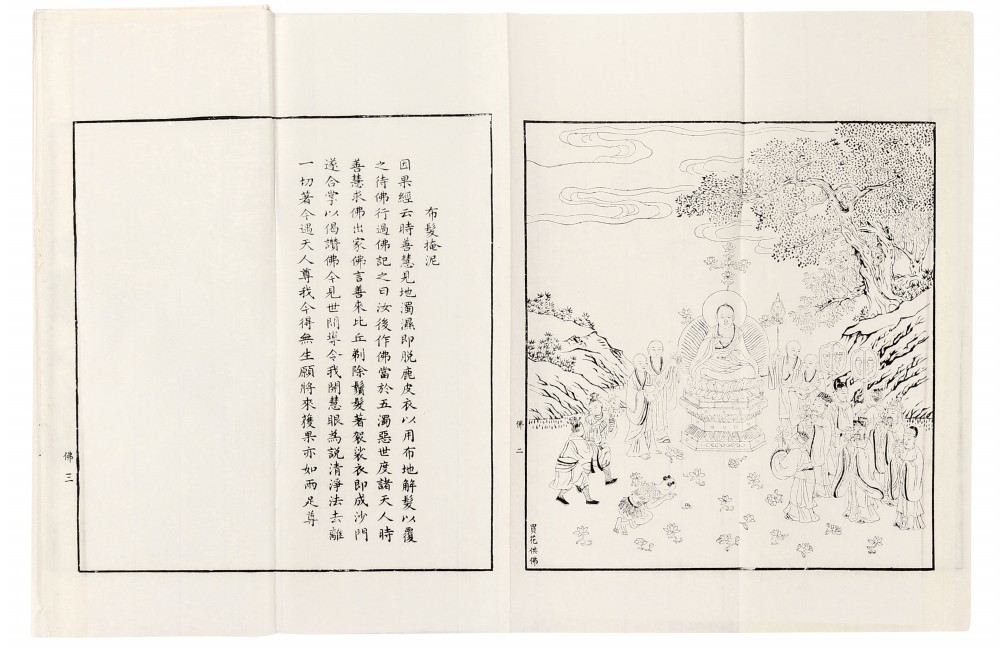 買花供佛
佛二
布髮掩泥
因果經云時善慧見地濁濕即脫鹿皮衣以用布地解髮以覆
之待佛行過佛記之曰汝後作佛當於五濁惡世度諸天人時
善慧求佛出家佛言善來比丘剃除鬚髮著袈裟衣即成沙門
遂合掌以偈讚佛今見世間導令我開慧眼為說清淨法去離
一切著今遇天人尊我今得無生願將來獲果亦如兩足尊
佛三